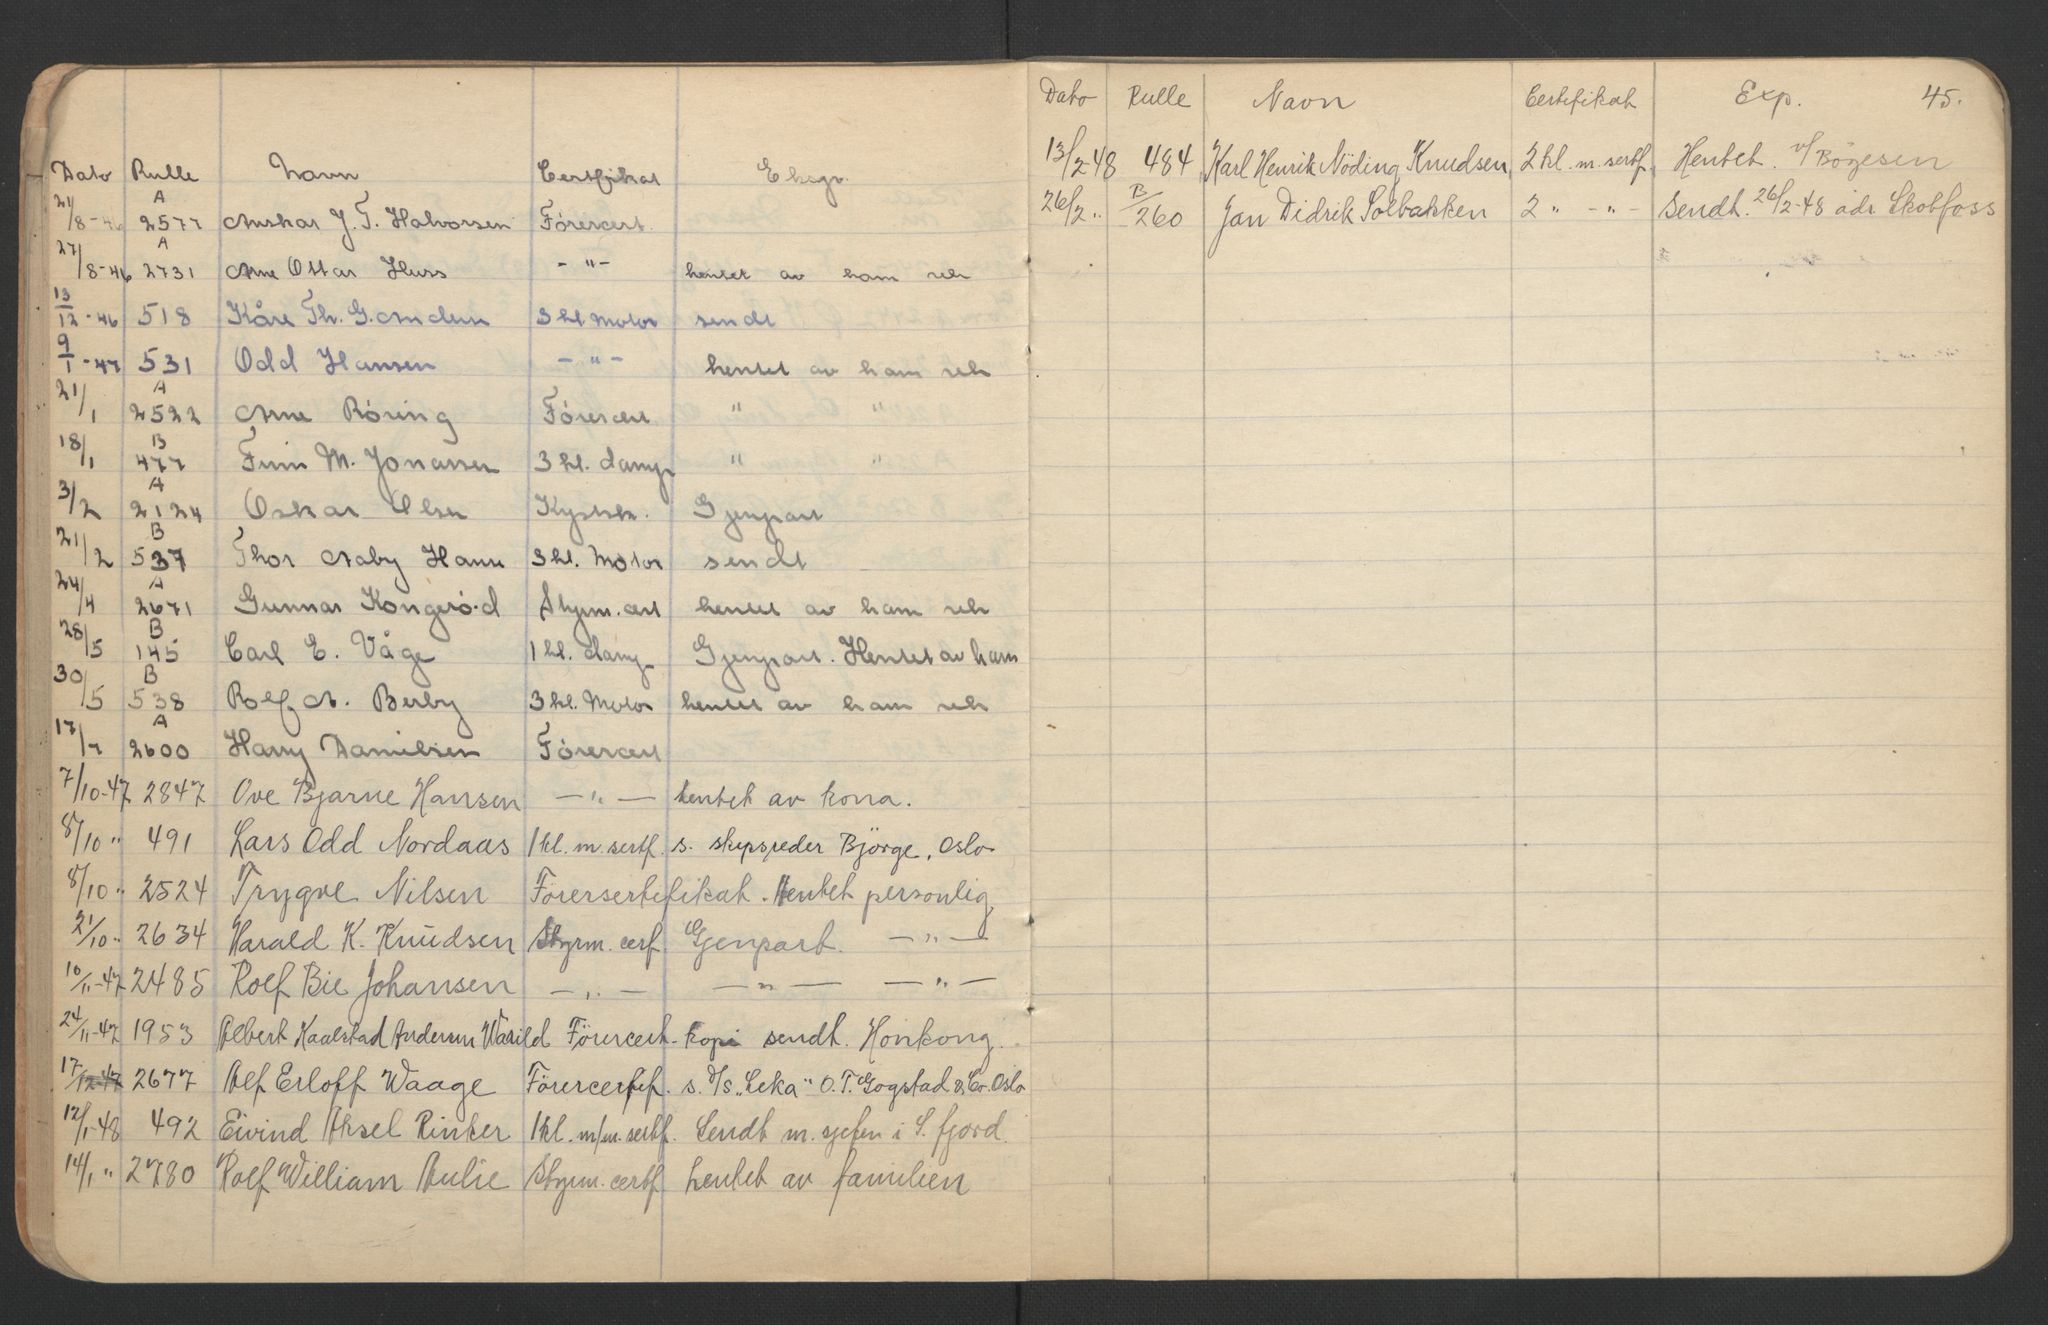 Dato Rulle Navn Certfikat Eksp.
21/8-46 A 2577 Anskar J. T. Halvorsen Förercert.
27/8-46 A 2731 Arne Ottar Huss - " - hentet av ham selv
13/12-46 518 Kåre Th. G. Andersen 3 kl. Motor sendt
9/1-47 531 Odd Hansen - " - hentet av ham selv
21/1 A 2522 Arne Röring Förercert " "
18/1 B 477 Finn M. Jonassen 3 kl. damp " "
3/2 A 2124 Oskar Olsen Kystsk. Gjenpart
21/2 B 537 Thor Aaby Hansen 3 kl. Motor sendt
24/4 A 2671 Gunnar Kongeröd Styrm. cert hentet av ham selv
28/5 B 145 Carl E. Våge 1 kl. damp Gjenpart. Hentet av ham
30/5 B 538 Rolf A. Berby 3 kl. Motor hentet av ham selv
17/7 A 2600 Harry Danielsen Förercert
7/10-47 2847 Ove Bjarne Hansen - " - hentet av kona.
8/10 " 491 Lars Odd Nordaas 1 kl. m. sertf. s. skipsreder Björge, Oslo
8/10 " 2524 Trygve Nilsen Förersertifikat. Hentet personlig
21/10 " 2634 Harald K. Knudsen Styrm. cerf. Gjenpart. - " -
10/11-47 2485 Rolf Bie Johansen - " - - " - - " -
24/11-47 1953 Albert Kaalstad Andersen Warild Förercert. kopi sendt. Honkong.
17/12-47 2677 Alf Erloff Waage Förercertif. s. D/s. "Leka" O. T. Gogstad & Co. Oslo
12/1-48 492 Eivind Aksel Rinker 1 kl. m/m. sertf. Sendt m. sjefen i S. fjord.
14/1 " 2780 Rolf William Aulie Styrm. certf. hentet av familien
Dato Rulle Navn Certifikat Exp. 45.
13/2-48 484 Karl Henrik Nöding Knudsen 2 kl. m. sertf. Hentet. v/ Bögesen
26/2 " B/260 Jan Didrik Solbakken 2 " - " - Sendt. 26/2-48 adr. Skotfoss